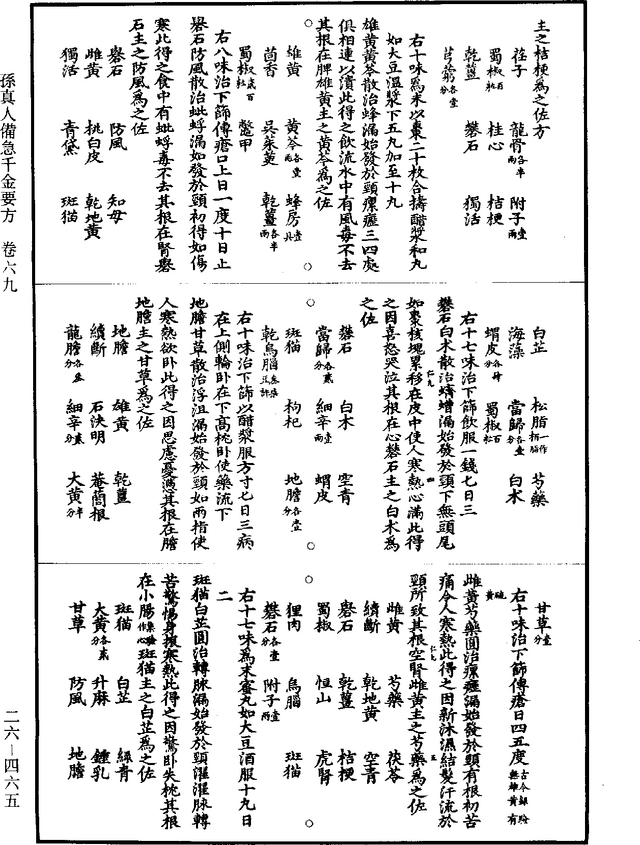 主之桔梗為之佐方
荏子 龍骨各半兩 附子壹兩
蜀椒百枚 桂心 桔梗
乾薑 礜石 獨活
芎藭各壹分
右十味為末以棗二十枚合擣醋漿和丸
如大豆溫漿下五丸加至十九
雄黃黃芩散治蜂漏始發於頸瘰癧三四處
俱相連以潰此得之飲流水中有風毒不去
其根在脾雄黃主之黃芩為之佐
雄黃 黃芩各壹兩 蜂房壹具
茴香 吳茱萸 乾薑各半兩
蜀椒貳百枚 鱉甲
右八味治下篩傅瘡口上日一度十日止
礜石防風散治蚍蜉漏始發於頸初得如傷
寒此得之食中有蚍蜉毒不去其根在腎礜
石主之防風為之佐
礜石 防風 知母
雌黃 桃白皮 乾地黃
獨活 青黛 斑貓
白芷 松脂一作柏脂 芍藥
海藻 當歸各壹分 白朮
蝟皮各肆分 蜀椒百枚
右十七味治下篩飲服一錢七日三
礜石白朮散治蠐螬漏始發於頸下無頭尾
如棗核塊累移在皮中使人寒熱心滿此得
之因喜怒哭泣其根在心礜石主之白朮為
之佐
礜石 白朮 空青
當歸各貳分 細辛壹兩 蝟皮
斑貓 枸杞 地膽各壹分
乾烏腦
右十味治下篩以醋漿服方寸匕日三病
在上側輪臥在下高枕臥使藥流下
地膽甘草散治浮沮漏始發於頸如兩指使
人寒熱欲臥此得之因思慮憂懣其根在膽
地膽主之甘草為之佐
地膽 雄黃 乾薑
續斷 石決明 菴䕡根
龍膽各叁分 細辛貳分 大黃半分
甘草壹分
右十味治下篩傅瘡日四五度
雌黃芍藥圓治瘰癧漏始發於頸有根初苦
痛令人寒熱此得之因新沐濕結髮汗流於
頸所致其根空腎雌黃主之芍藥為之佐
雌黃 芍藥 茯苓
續斷 乾地黃 空青
礜石 乾薑 桔梗
蜀椒 恒山 虎腎
狸肉 烏腦 斑貓
礜石各壹分 附子壹兩
右十七味為末蜜丸如大豆酒服十九日
二
斑貓白芷圓治轉脉漏始發於頸濯濯脉轉
苦驚惕身振寒熱此得之因驚臥失枕其根
在小腸斑貓主之白芷為之佐
斑貓 白芷 綠青
大黃各貳分 升麻 鍾乳
甘草 防風 地膽
孫真人備急千金要方 卷六九
二六—四六五